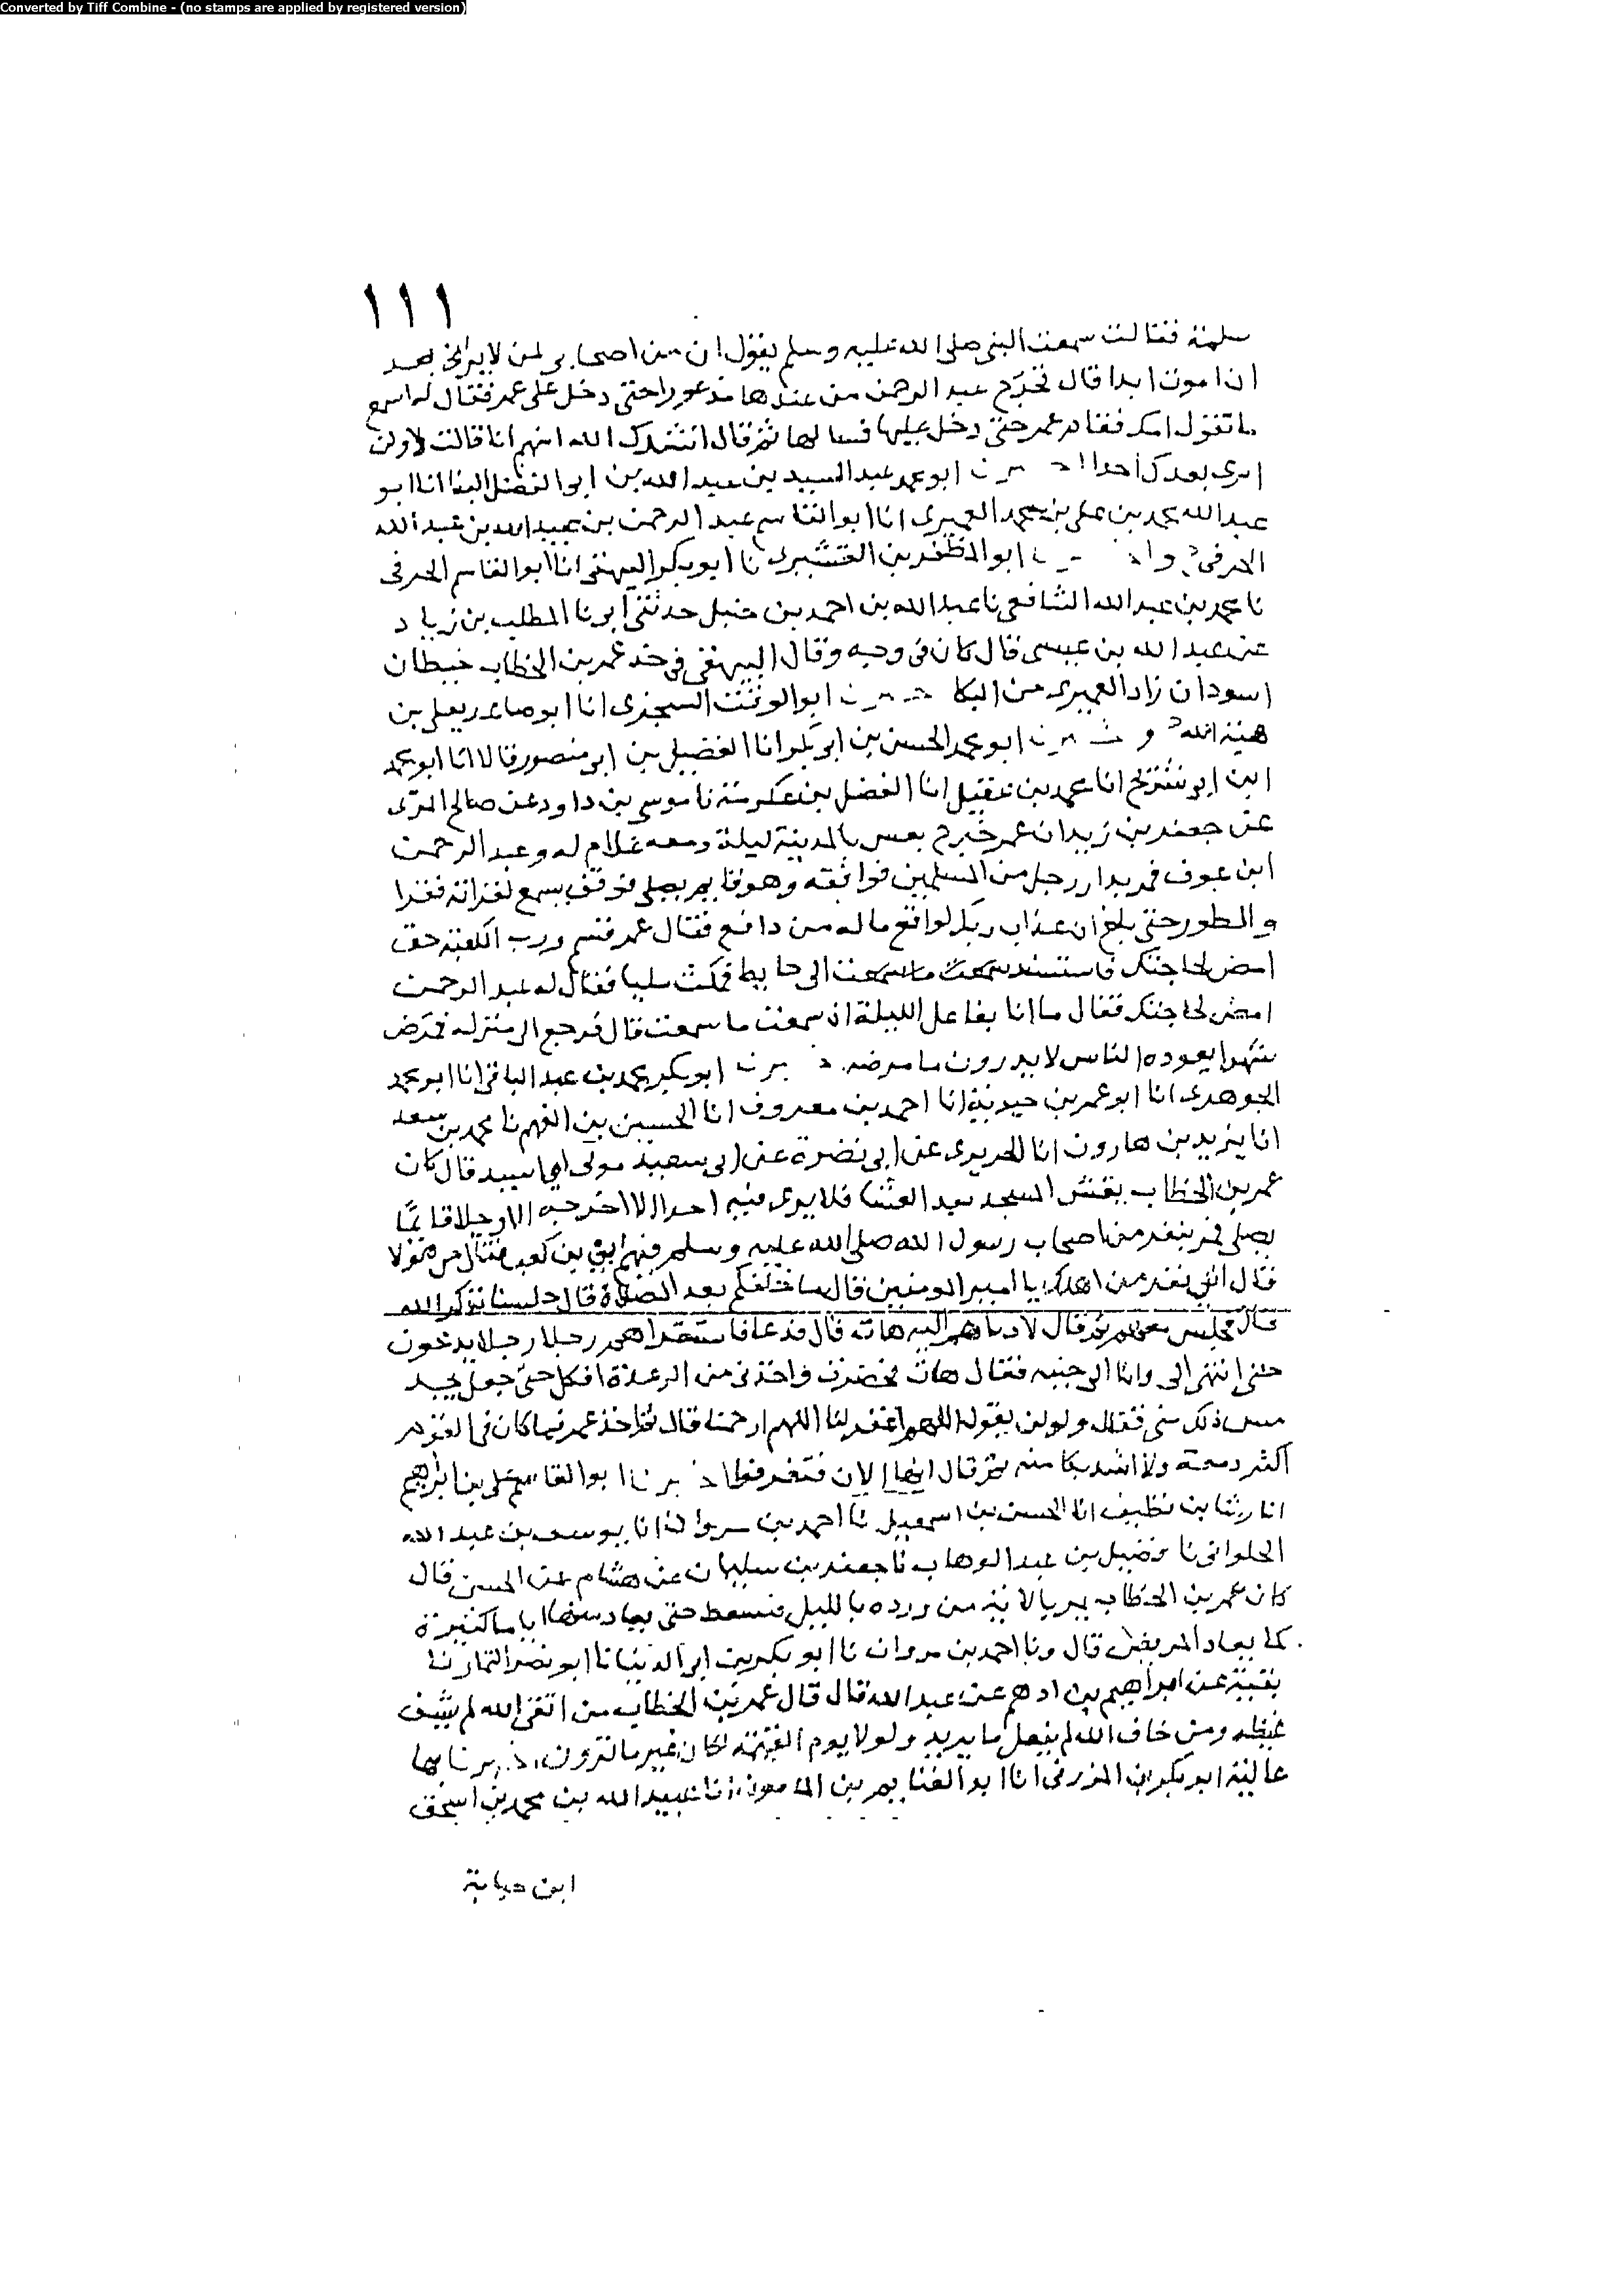 Converted by Tiff Combine - (no stamps are applied by registered version)
١١١
سلمة فقالت سمعت النبى صلى الله عليه وسلم يقول ان من اصحابى لمن لا يرانى بعد
ان اموت ابدا قال فخرج عبد الرحمن من عندها مذعورا حتى دخل على عمر فقال له اسمع
ما تقول امك فقام عمر حتى دخل عليها فسالها ثم قال انشدك الله امنهم انا قالت لا ولن
ابرى بعدك احدا ابو محمد عبد السيد بن عبد الله بن ابو الفضل البنا انا ابو
عبد الله محمد بن على بن محمد العميرى انا ابو القاسم عبد الرحمن بن عبيد الله بن عبد الله
الحرفى وا ابو المظفر بن القشيرى نا ابو بكر البيهقى انا ابو القاسم الحرفى
نا محمد بن عبد الله الشافعى نا عبد الله بن احمد بن حنبل حدثنى ابى نا المطلب بن زياد
عن عبد الله بن عيسى قال كان فى وجه وقال البيهقى فى خد عمر بن الخطاب خيطان
اسودان زاد العميرى من البكا ابو الوقت السجزى انا ابو صاعد يعلى بن
هبة الله و ابو محمد الحسن بن ابى بكر انا الفضيل بن ابى منصور قالا انا ابو محمد
ابن ابى شريح انا محمد بن عقيل انا الفضل بن عكرمة نا موسى بن داود عن صالح المرى
عن جعفر بن زيد ان عمر خرج يعس بالمدينة ليلة ومعه غلام له وعبد الرحمن
ابن عوف فمر بدار رجل من المسلمين فوافقه وهو قايم يصلى فوقف يسمع لقراته فقرا
والطور حتى بلغ ان عذاب ربك لواقع ما له من دافع فقال عمر قسم ورب الكعبة حق
امض لحاجتك فاستسند الى حايط فمكث مليا فقال له عبد الرحمن
امض لحاجتك فقال ما انا بفاعل الليلة اذ سمعت ما سمعت قال فرجع الى منزله فمرض
شهرا يعوده الناس لا يدرون ما مرضه ابو بكر محمد بن عبد الباقى انا ابو محمد
الجوهرى انا ابو عمر بن حيوية انا احمد بن معروف انا الحسين بن الفهم نا محمد بن سعد
انا يزيد بن هارون انا الجريرى عن ابى نضرة عن ابى سعيد مولى ابى اسيد قال كان
عمر بن الخطاب يفتش المسجد بعد العشا فلا يرى فيه احدا الا اخرجه الا رجلا قايما
يصلى فمر بنفر من اصحاب رسول الله صلى الله عليه وسلم فيهم ابى بن كعب فقال من هولا
فقال ابى نفر من اهلك يا امير المومنين قال ما خلفكم بعد الصلاة قال جلسنا نذكر الله
قال فجلس معهم ثم قال لادناهم اليه هات قال فدعا فاستقراهم رجلا رجلا يدعون
حتى انتهى الى وانا الى جنبه فقال هات فحضرت واخذنى من الرعدة افكل حتى جعل يجد
مس ذلك منى فقال ولو ان يقول اللهم اغفر لنا اللهم ارحمنا قال ثم اخذ عمر فما كان فى القوم
اكثر دمعة ولا اشد بكا منه ثم قال ايها الان فتفرقوا ابو القاسم على بن ابراهيم
انا رشا بن نظيف انا الحسن بن اسمعيل نا احمد بن مروان نا يوسف بن عبد الله
الحلوانى نا فضيل بن عبد الوهاب نا جعفر بن سليمان عن هشام عن الحسن قال
كان عمر بن الخطاب يمر بالاية من ورده بالليل فيسقط حتى يعاد منها اياما كثيرة
كما يعاد المريض قال ونا احمد بن مروان نا ابو بكر بن ابى الدنيا نا ابو نصر التمار نا
بقية عن ابراهيم بن ادهم عن عبد الله قال قال عمر بن الخطاب من اتقى الله لم يشف
غيظه ومن خاف الله لم يفعل ما يريد ولولا يوم القيمة لكان غير ما ترون بها
عالية ابو بكر بن المزرفى انا ابو الغنايم بن المامون انا عبيد الله بن محمد بن اسحق
ابن حبابة